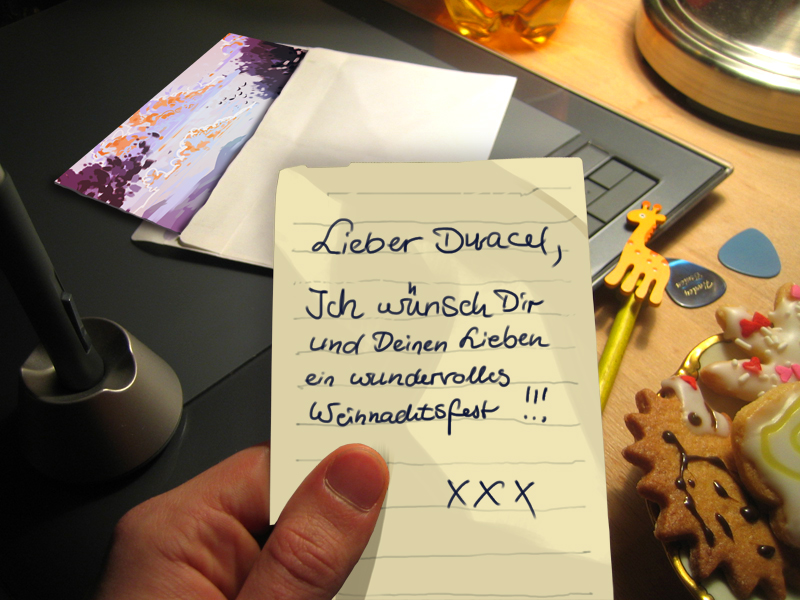 Lieber Duracel,
Ich wünsch Dir
und Deinen Lieben
ein wundervolles
Weihnachtsfest !!!
XXX